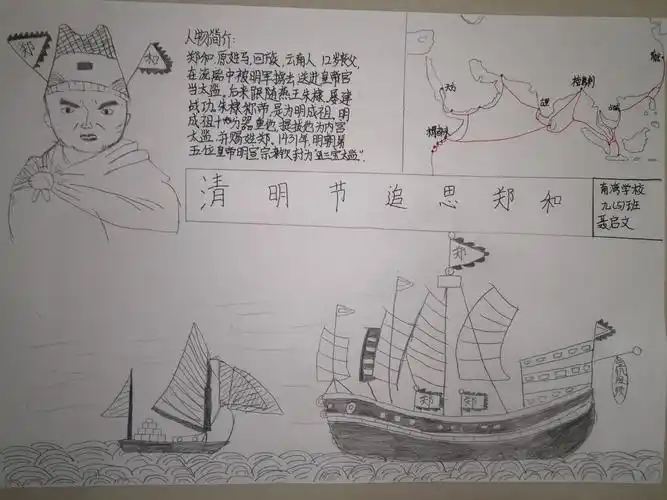 郑
和
人物简介:
郑和,原姓马,回族,云南人,12岁丧父,
在流离中被明军掳去,送进皇帝宫
当太监。后来跟随燕王朱棣,屡建
战功。朱棣称帝,是为明成祖,明
成祖十分器重他,提拔他为内宫
太监,并赐姓郑。1431年,明朝第
五位皇帝明宣宗封为"三宝太监".
清明节追思郑和
南湾学校
九(5)班
聂启文
郑
郑
郑